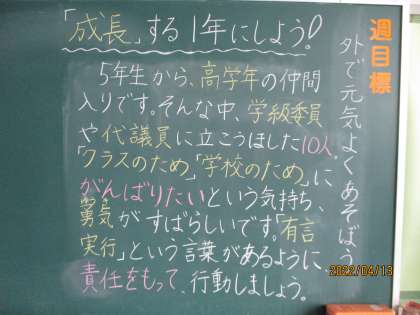 「成長」する1年にしよう!
5年生から、高学年の仲間
入りです。そんな中、学級委員
や代議員に立こうほした10人。
「クラスのため」「学校のため」に
がんばりたいという気持ち、
勇気がすばらしいです。「有言
実行」という言葉があるように、
責任をもって、行動しましょう。
週目標
外で元気よくあそぼう
2022/04/13